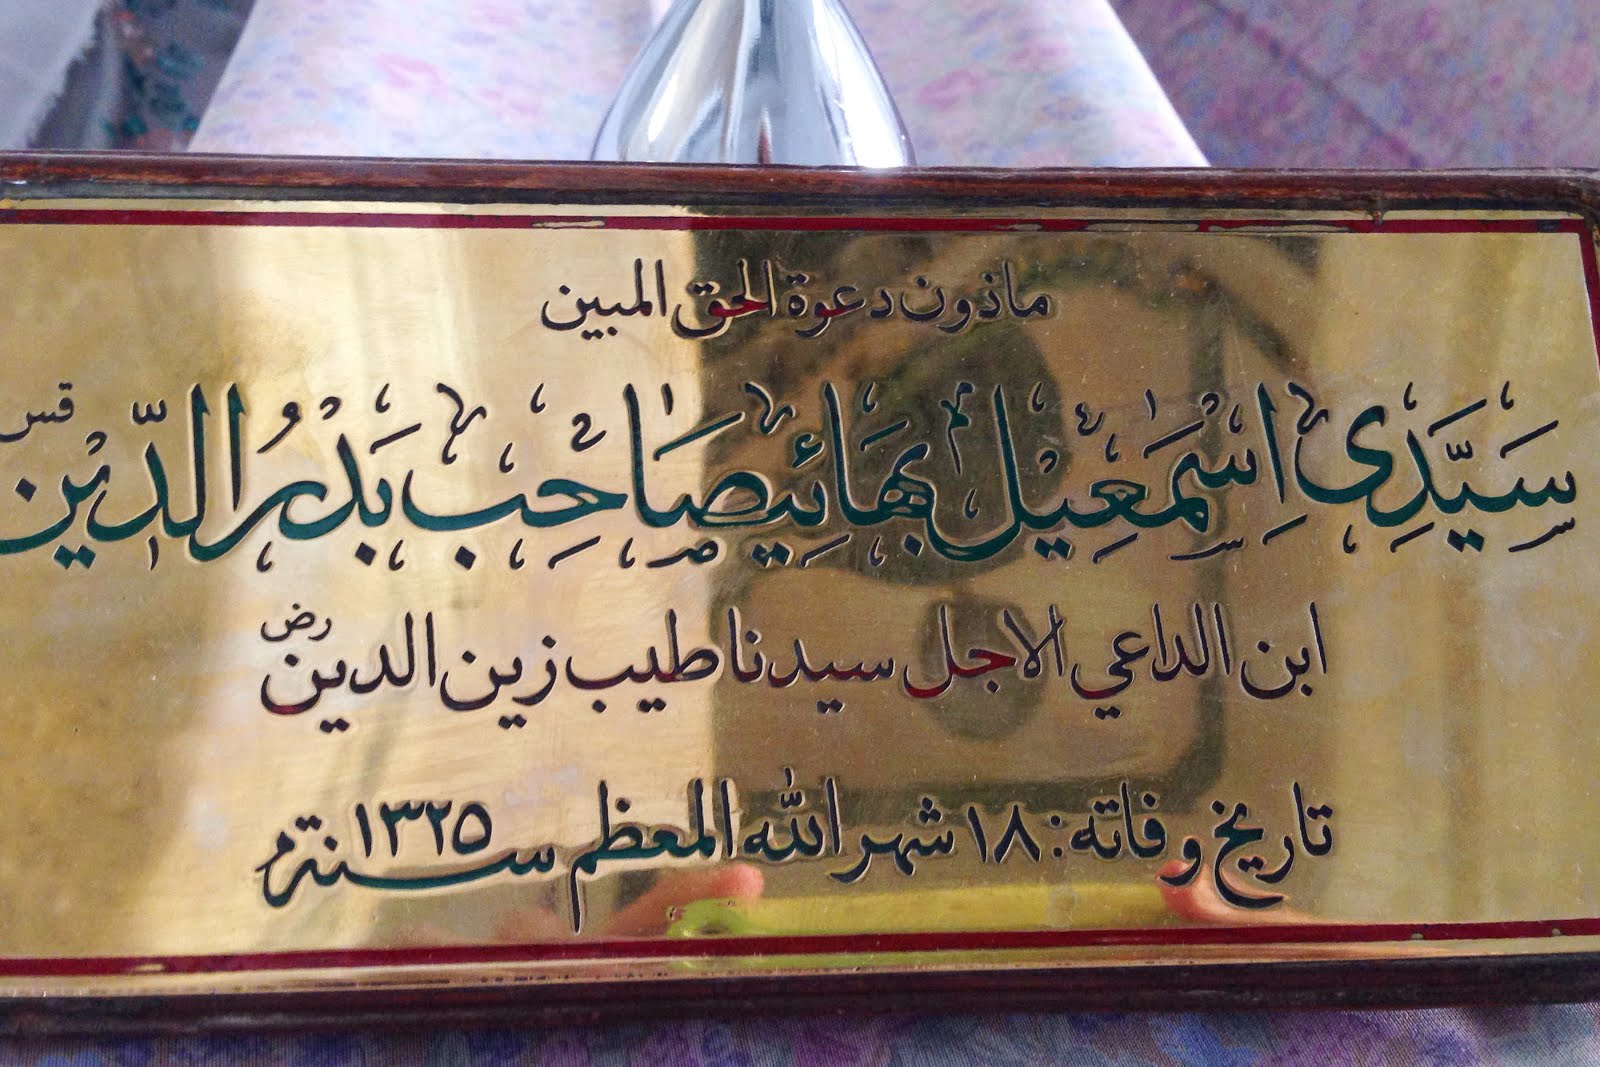 ماذون دعوة الحق المبين
سَيِّدِي اِسْمَعِيل بِهَائِيصَاحِب بَدْرُ الدِّيْن قس
ابن الداعي الاجل سيدنا طيب زين الدين رض
تاريخ وفاته: ١٨ شهر الله المعظم سنة ١٣٢٥